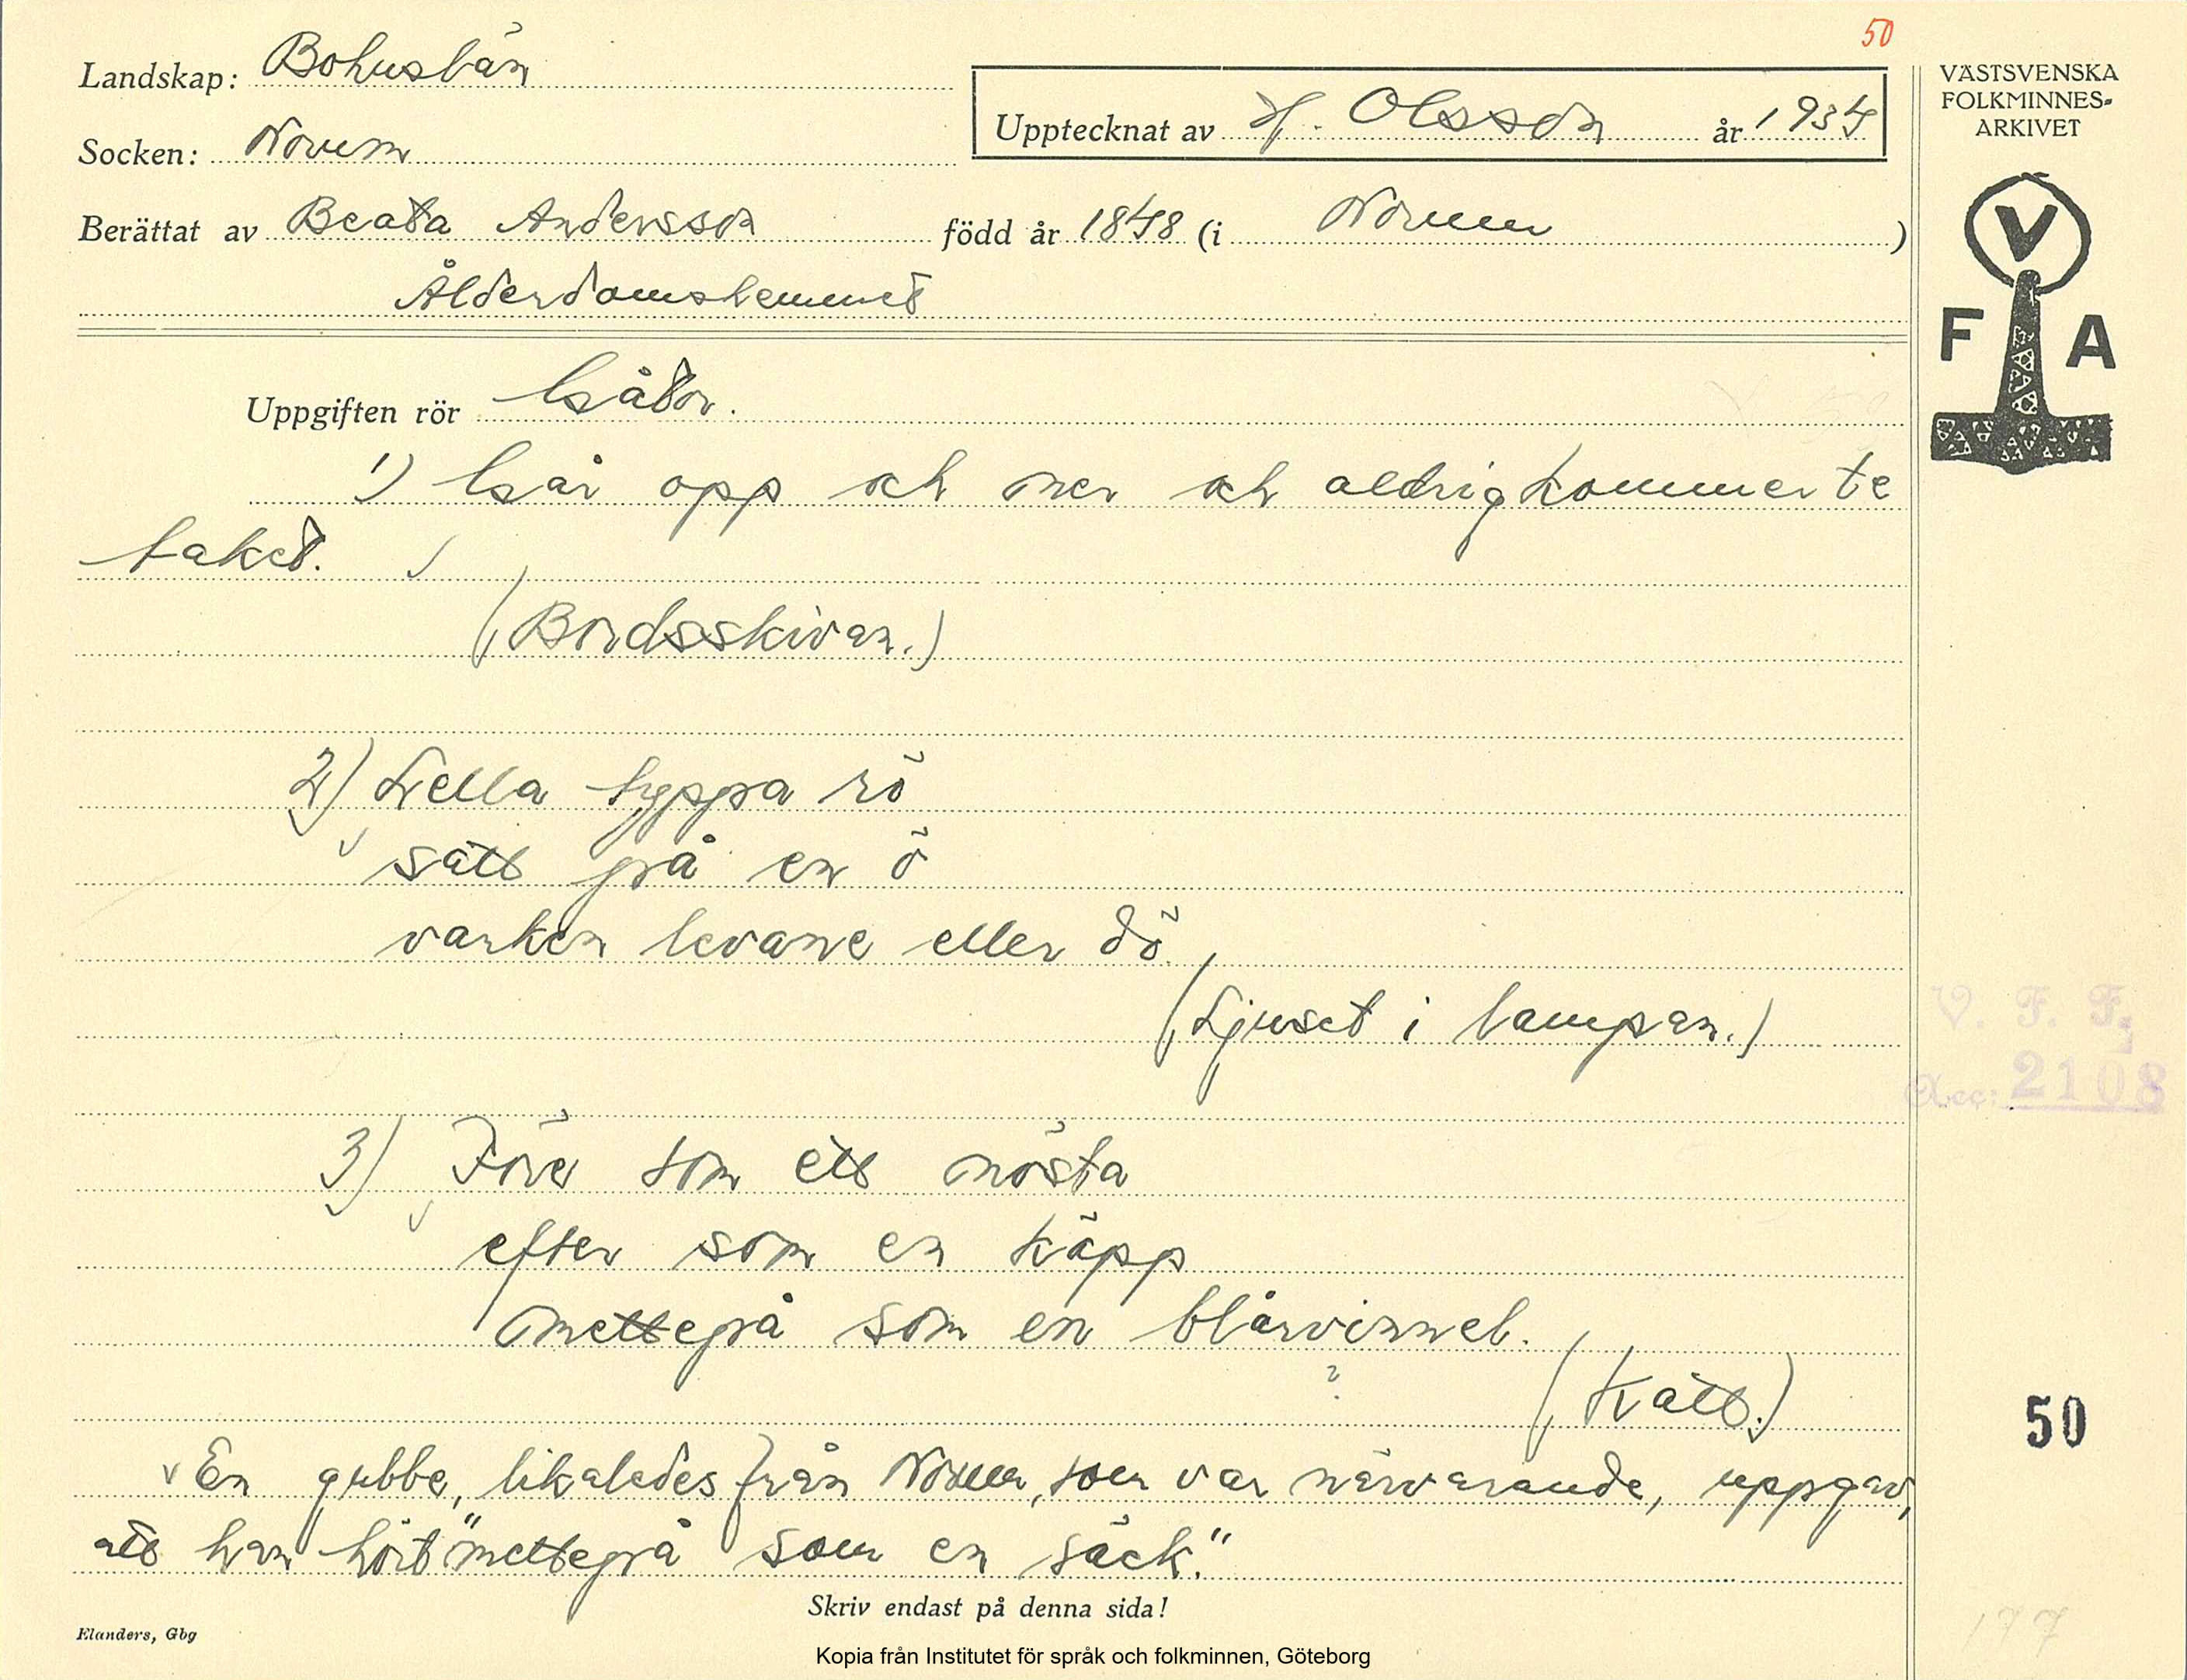 50
Landskap: Bohuslän
Upptecknat av H. Olsson år 1934
VÄSTSVENSKA
FOLKMINNES-
ARKIVET
Socken: Norum
Berättat av Beata Andersson född år 1848 (i Norum)
Ålderdomshemmet
V
F A
Uppgiften rör Gåtor.
1) Går opp och ner och aldrig kommer te
taket.
(Bordsskivan.)
2) Lella typpa rö
sätt på en ö
varken levane eller dö.
(Ljuset i lampan.)
V. F. F.
Acc: 2108
3) Före som ett nösta
efter som en käpp
mettepå som en blårvinnel.
(Katt.)
50
En gubbe, likaledes från Norum, som var närvarande, uppgav,
att han hört "mettepå som en säck."
Skriv endast på denna sida!
Elanders, Gbg
177
Kopia från Institutet för språk och folkminnen, Göteborg